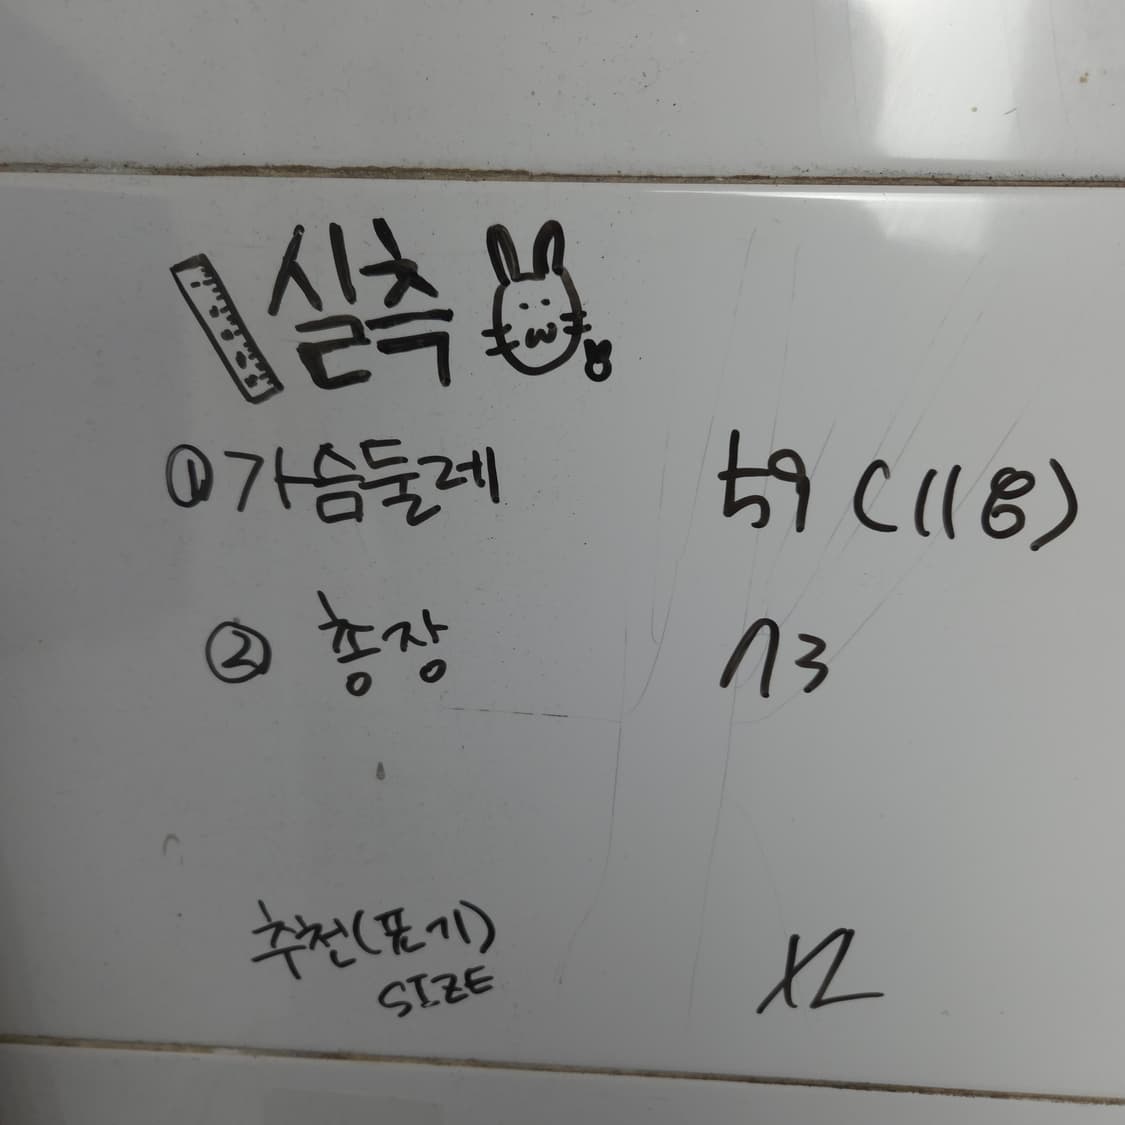 실측
① 가슴둘레 59 (118)
② 총장 73
추천(표기) XL
SIZE